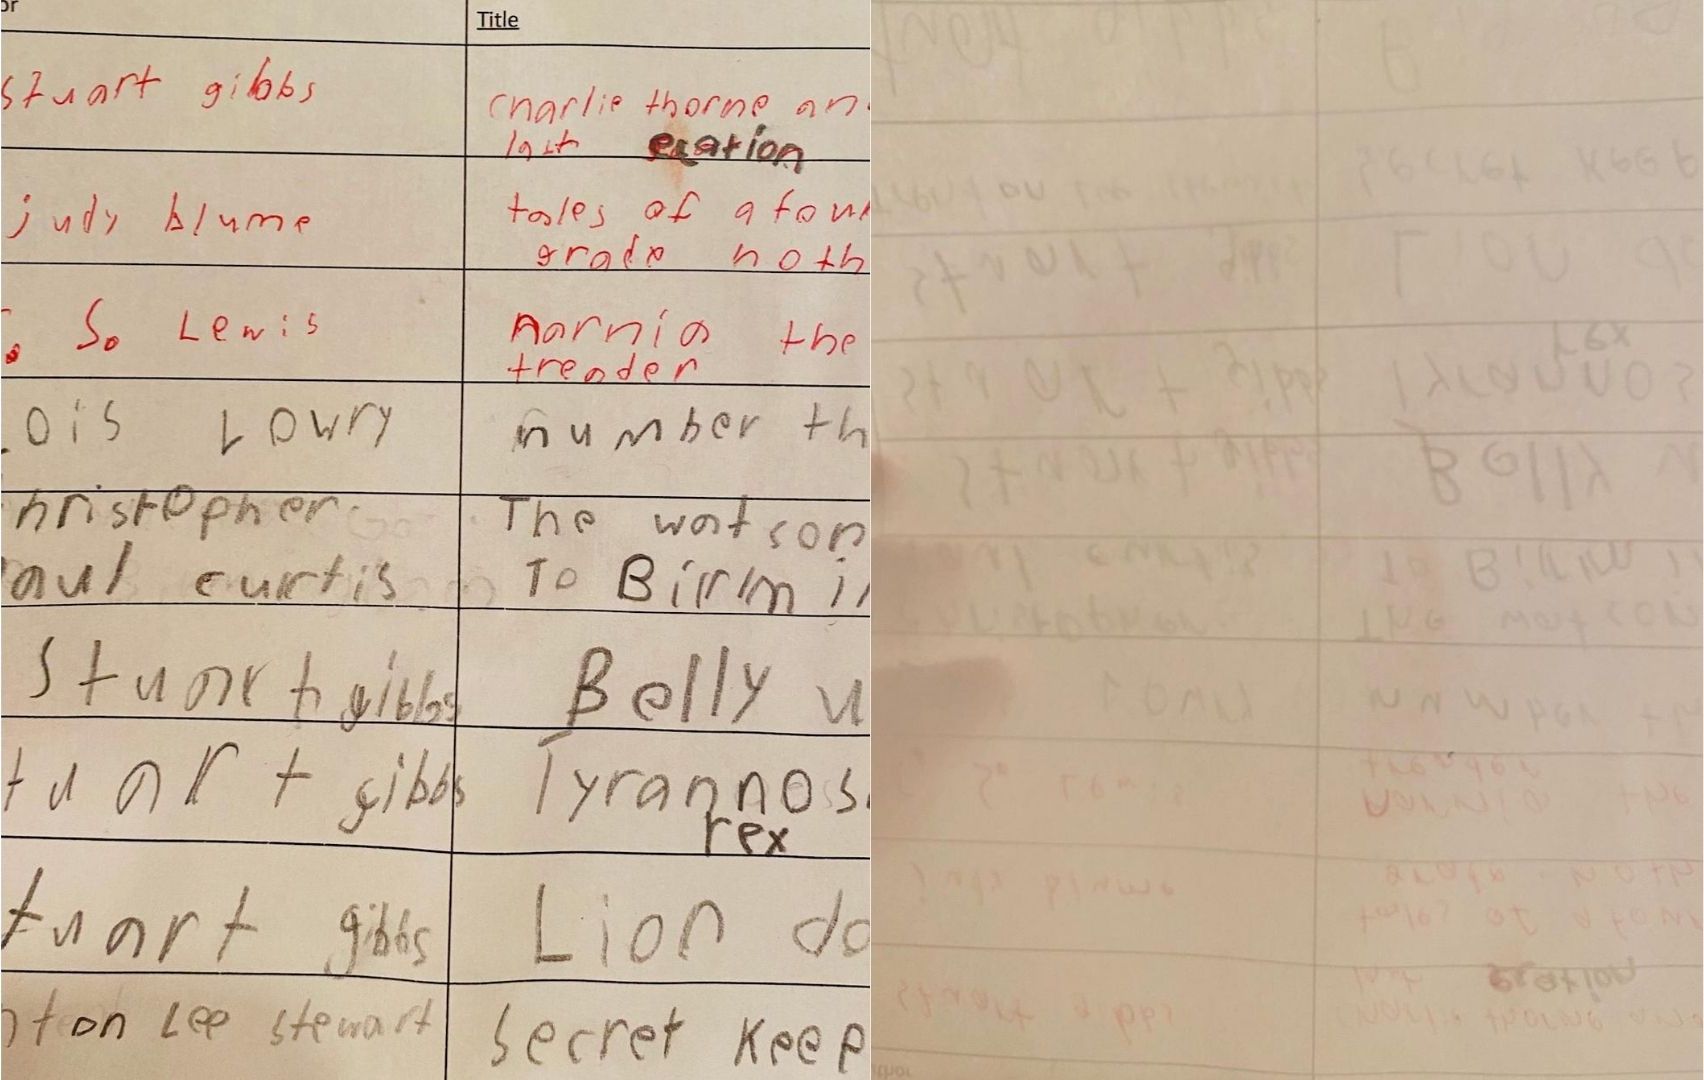 or Title
stuart gibbs
charlie thorne an
last eqation
judy blume
tales of a four
grade noth
. S. Lewis
narnia the
treader
ois Lowry
number th
hristopher.
aul curtis
The watson
To Birrmin
Stuart gibbs
Belly u
tuart gibbs
Tyrannos
rex
tuart gibbs
Lion da
nton Lee stewart
Secret Keep